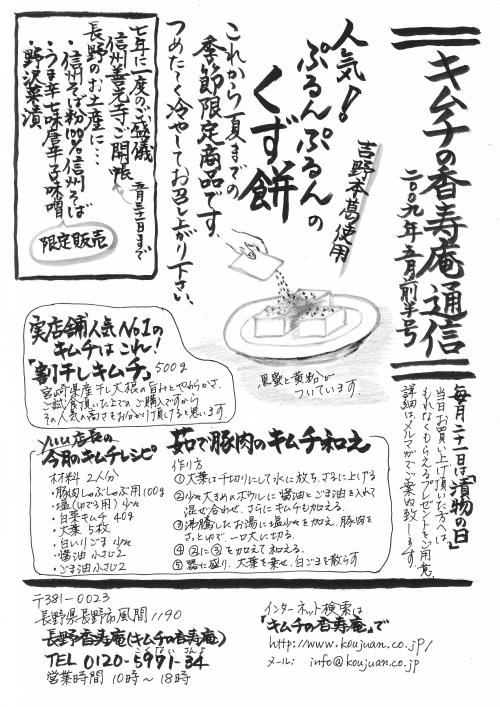 キムチの香寿庵通信
二〇〇九年五月前半号
毎月二十一日は「漬物の日」
当日お買い上げ頂いた方へは、
もれなくもらえるプレゼントをご用意。
詳細は、メルマガでご案内致します。
人気!!
ぷるんぷるんの
くず餅
吉野本葛使用
これから夏までの
季節限定商品です。
つめた〜く冷やしてお召し上がり下さい。
黒蜜と黄粉が
ついています。
七年に一度のご盛儀
信州善光寺ご開帳 五月三十一日まで
長野のお土産に…
・信州そば粉100%信州そば
・うま辛七味唐辛子味噌
・野沢菜漬
限定販売
実店舗人気No.1の
キムチはこれ!
「割干しキムチ」500g
宮崎県産干し大根の旨みとやわらかさ。
ご試食頂いた上でのご購入ですから
その人気の高さをお分かり頂けると思います。
yuu店長の
今月のキムチレシピ
茹で豚肉のキムチ和え
材料 2人分
・豚肉しゃぶしゃぶ用100g
・塩(ゆでる用)少々
・白菜キムチ 40g
・大葉 5枚
・白いりごま 少々
・醤油 小さじ2
・ごま油 小さじ2
作り方
①大葉は千切りにして水に放ち、ざるに上げる
②少々大きめのボウルに醤油とごま油を入れて
混ぜ合わせ、さらにキムチも加える。
③沸騰したお湯に塩少々を加え、豚肉を
さっとゆで、一口大に切る。
④②に③を加えて和える。
⑤器に盛り、大葉を乗せ、白ごまを散らす
〒381-0023
長野県長野市風間1190
長野香寿庵(キムチの香寿庵)
TEL 0120-5971-34
営業時間 10時〜18時
インターネット検索は
「キムチの香寿庵」で
http://www.koujuan.co.jp/
メール: info@koujuan.co.jp